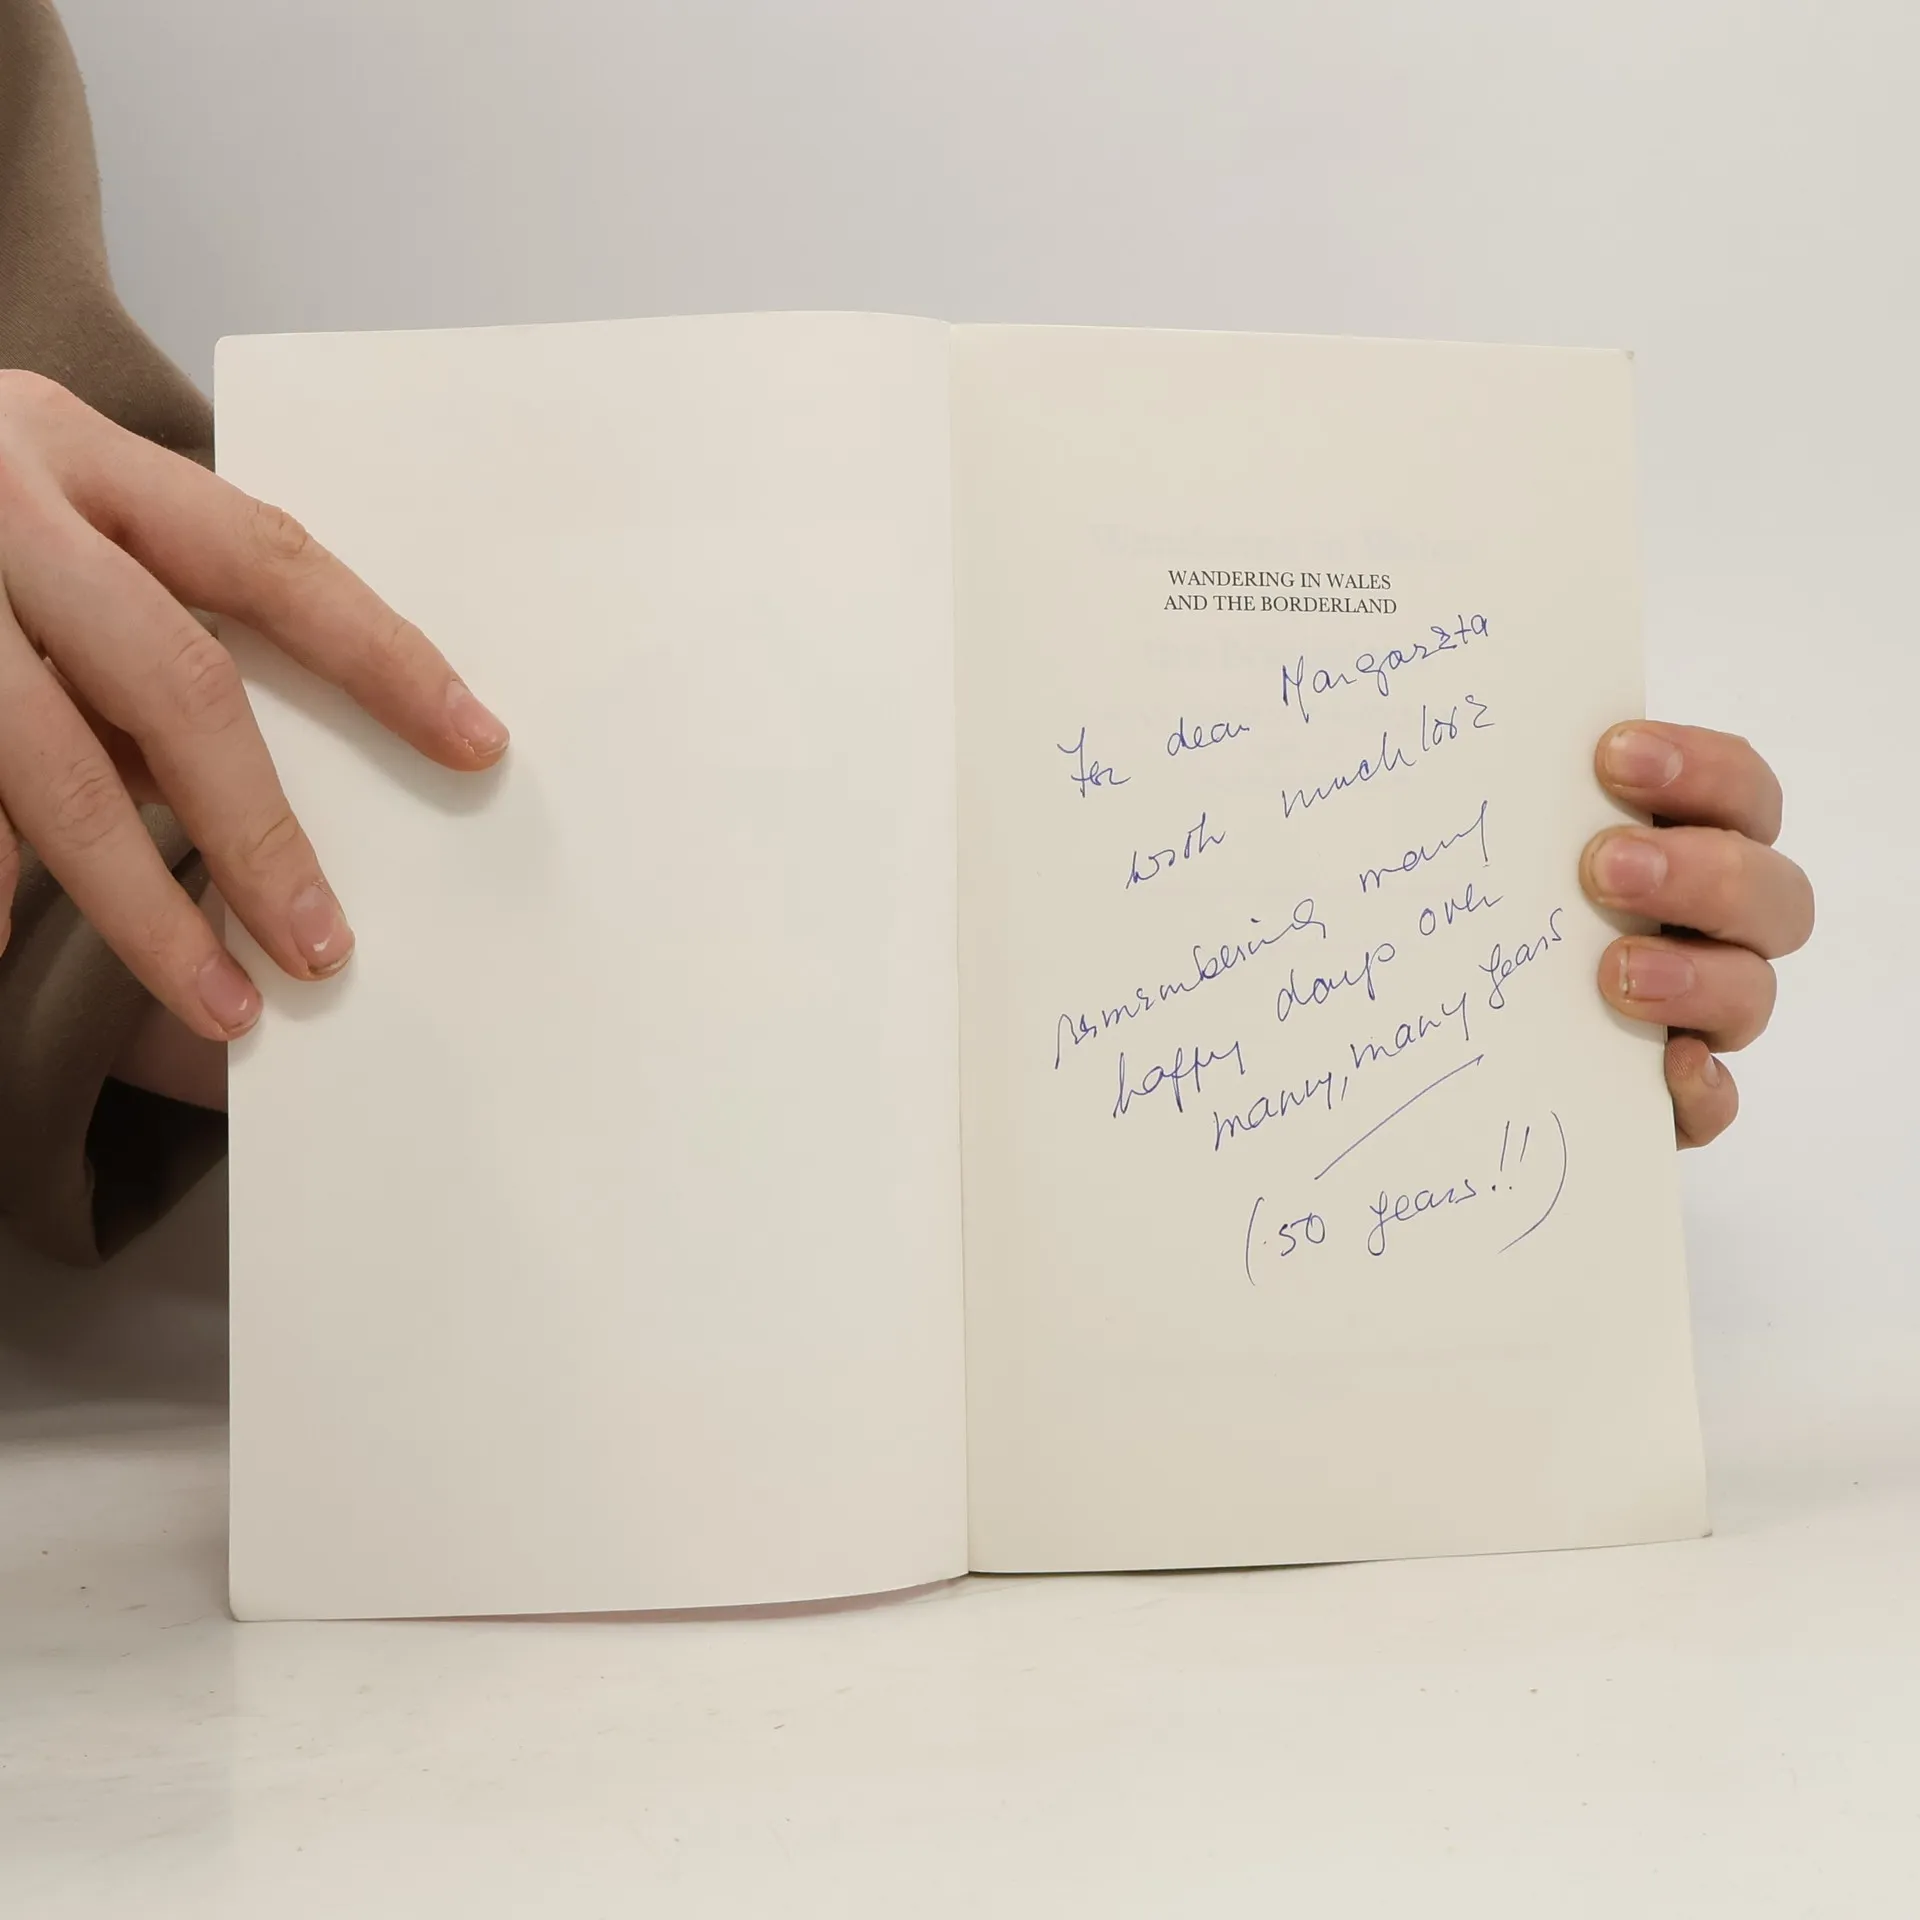 WANDERING IN WALES
AND THE BORDERLAND
For dear Margareta
with much love
remembering many
happy days over
many, many years
(50 years!!)